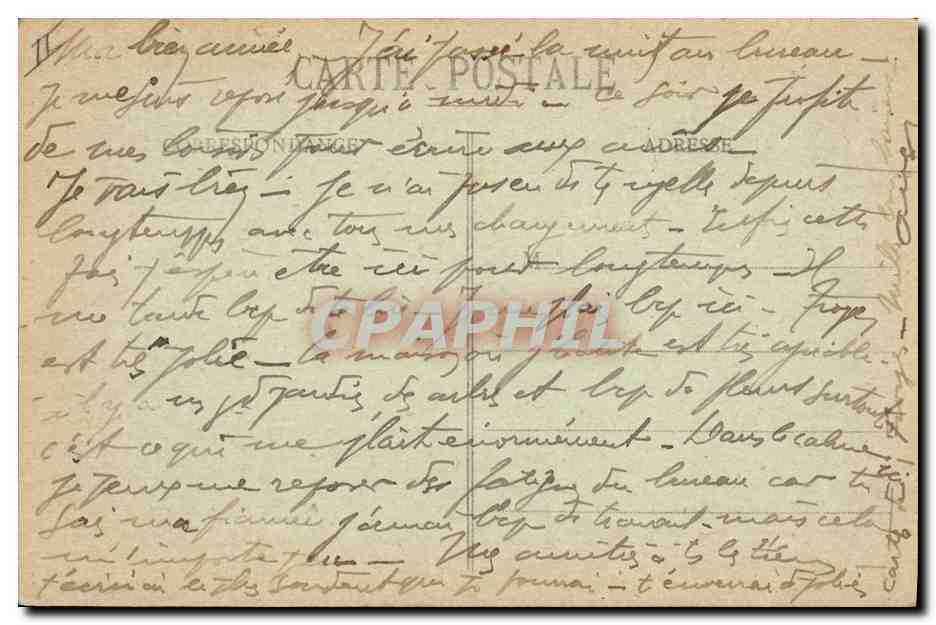 II
bien aimée J'ai passé la nuit au bureau -
CARTE POSTALE
Je me suis reposé jusqu'à midi - ce soir je profite
CORRESPONDANCE
ADRESSE
de mes loisirs pour écrire aux amis -
Je vais bien - Je n'ai pas eu de tes nouvelles depuis
longtemps avec tous mes changements - Enfin cette
fois j'espère être ici pour longtemps - Il
me tarde bcp de te lire - Je me plais bcp ici - Troyes
est très jolie - la maison où j'habite est très agréable -
il y a un gd jardin des arbres et bcp de fleurs surtout
c'est ce qui me plaît énormément - Dans le calme
je peux me reposer des fatigues du bureau car tu
sais ma j'ai bcp de travail - mais cela
m'importe peu - Mes amitiés à ts les tiens
t'écrirai le plus souvent que je pourrai - t'enverrai de jolies
cartes de Troyes - Mille
CPAPHIL